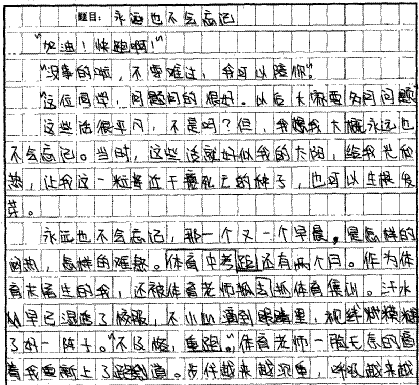 题目：永远也不会忘记
“加油！快跑啊！”
“没事的啦，不要难过，我可以陪你”
“这位同学，问题问的很好。以后大家要多问问题
这些话很平凡，不是吗？但，我想我大概永远也
不会忘记。当时，这些话就好似我的太阳，给我光和
热，让我这一粒接近于干瘪死亡的种子，也可以生根发
芽。
永远也不会忘记，那一个又一个早晨，是怎样的
闷热，怎样的难熬。体育中考距还有两个月。作为体
育末尾生的我，还被体育老师抓去抓体育集训。汗水
从早已湿透了校服，不小心滴到眼睛里，视线模糊
了好一阵子。“不及格，重跑。”体育老师一脸无奈的看
着我重新上了跑道。步伐越来越沉重，呼吸越来越